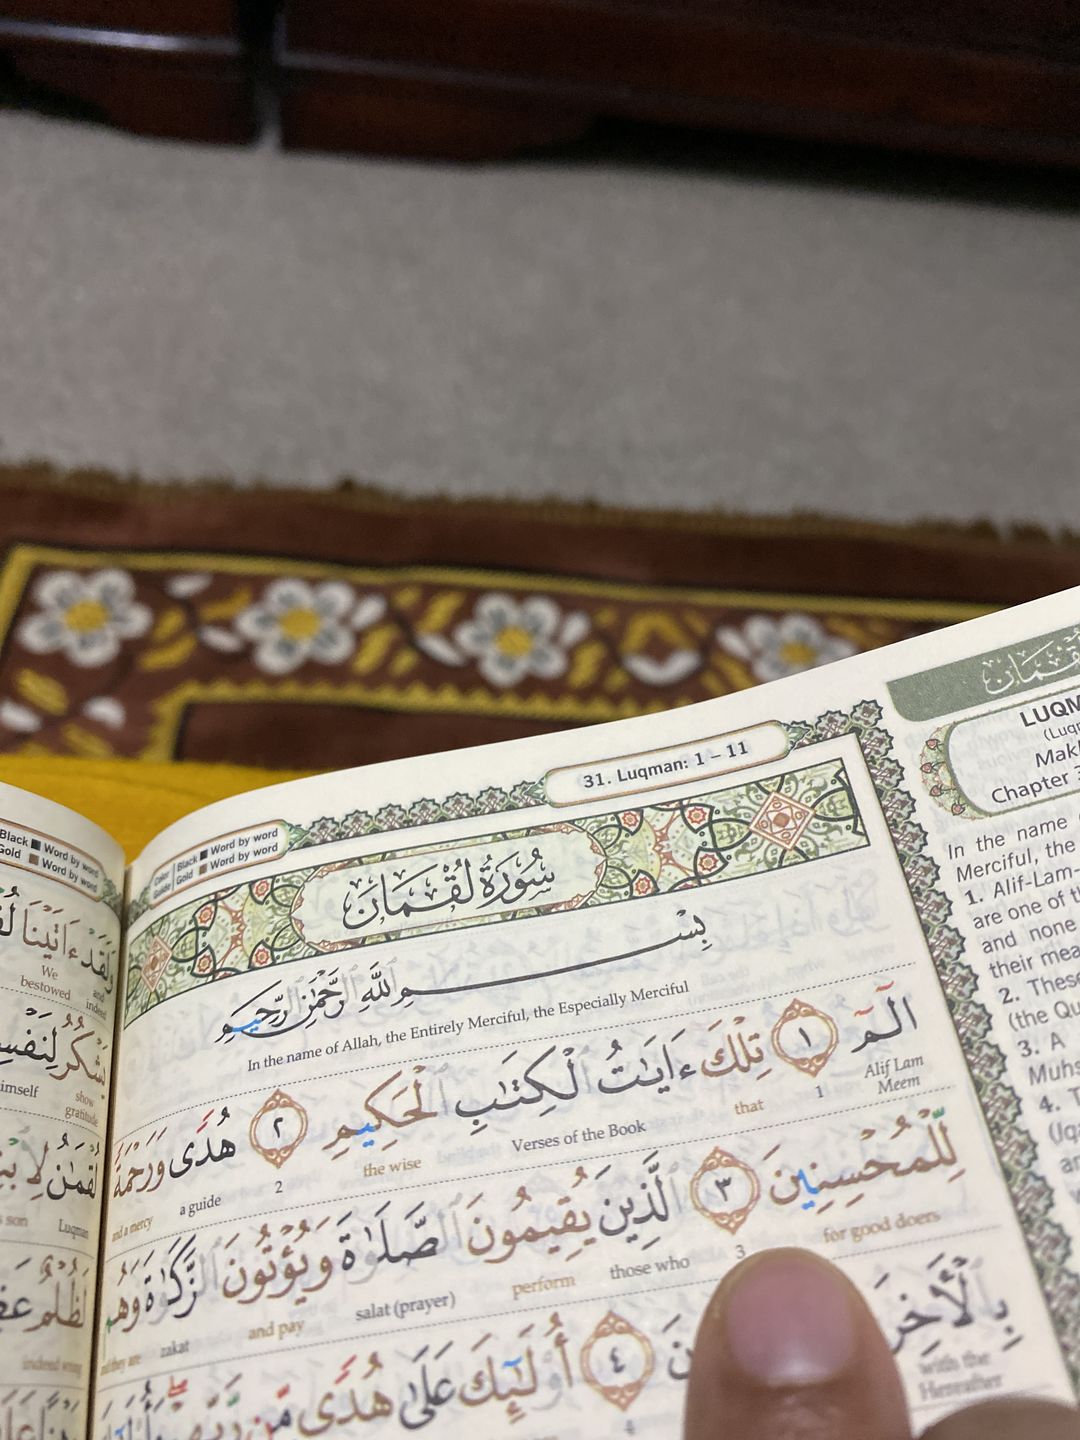 31. Luqman: 1 – 11
Color Guide
Black Word by word
Gold Word by word
سُورَةُ لُقْمَانَ
بِسْمِ اللَّهِ الرَّحْمَٰنِ الرَّحِيمِ
In the name of Allah, the Entirely Merciful, the Especially Merciful
الٓمٓ ١ تِلْكَ ءَايَٰتُ ٱلْكِتَٰبِ ٱلْحَكِيمِ ٢ هُدًى وَرَحْمَةً
Alif Lam Meem 1 that Verses of the Book the wise 2 a guide and a mercy
لِّلْمُحْسِنِينَ ٣ ٱلَّذِينَ يُقِيمُونَ ٱلصَّلَوٰةَ وَيُؤْتُونَ ٱلزَّكَوٰةَ وَهُم
for good doers 3 those who perform salat (prayer) and pay zakat and they are
بِٱلْأَخِرَ نَ ٤ أُو۟لَٰٓئِكَ عَلَىٰ هُدًى مِّن رَّبِّهِمْ
with the Hereafter 4
لُقْمَان
LUQM
(Luqm
Makk
Chapter 3
In the name
Merciful, the
1. Alif-Lam-
are one of th
and none
their mea
2. These
(the Qu
3. A
Muhs
4. T
(Iqa
an
Black Word by word
Gold Word by word
وَلَقَدْ ءَاتَيْنَا
We bestowed and indeed
يَشْكُرُ لِنَفْسِ
imself show gratitude
لُقْمَٰنُ لِٱبْنِ
s son Luqman
لَظُلْمٌ عَظِ
indeed wrong